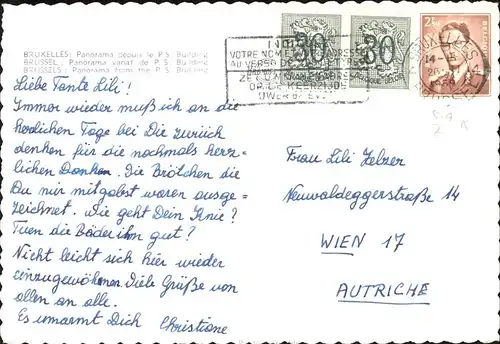 BRUXELLES: Panorama depuis le P.S. Building
BRUSSEL: Panorama vanaf de P.S. Building
BRUSSELS: Panorama from the P.S. Building
VOTRE NOM ET ADRESSE
AU VERSO DE
UWER
30
30
14-
Liebe Tante Lili!
Immer wieder muß ich an die
herrlichen Tage bei Dir zurück
denken für die nochmals herz-
lichen Danken. Die Brötchen die
Du mir mitgabst waren ausge-
zeichnet. Wie geht Dein Knie?
Tuen die Bäder ihm gut?
Nicht leicht sich hier wieder
einzugewöhnen. Viele Grüße von
allen an alle.
Es umarmt Dich Christiane
Frau Lili Zelzer
Neuwaldeggerstraße 14
WIEN 17
AUTRICHE